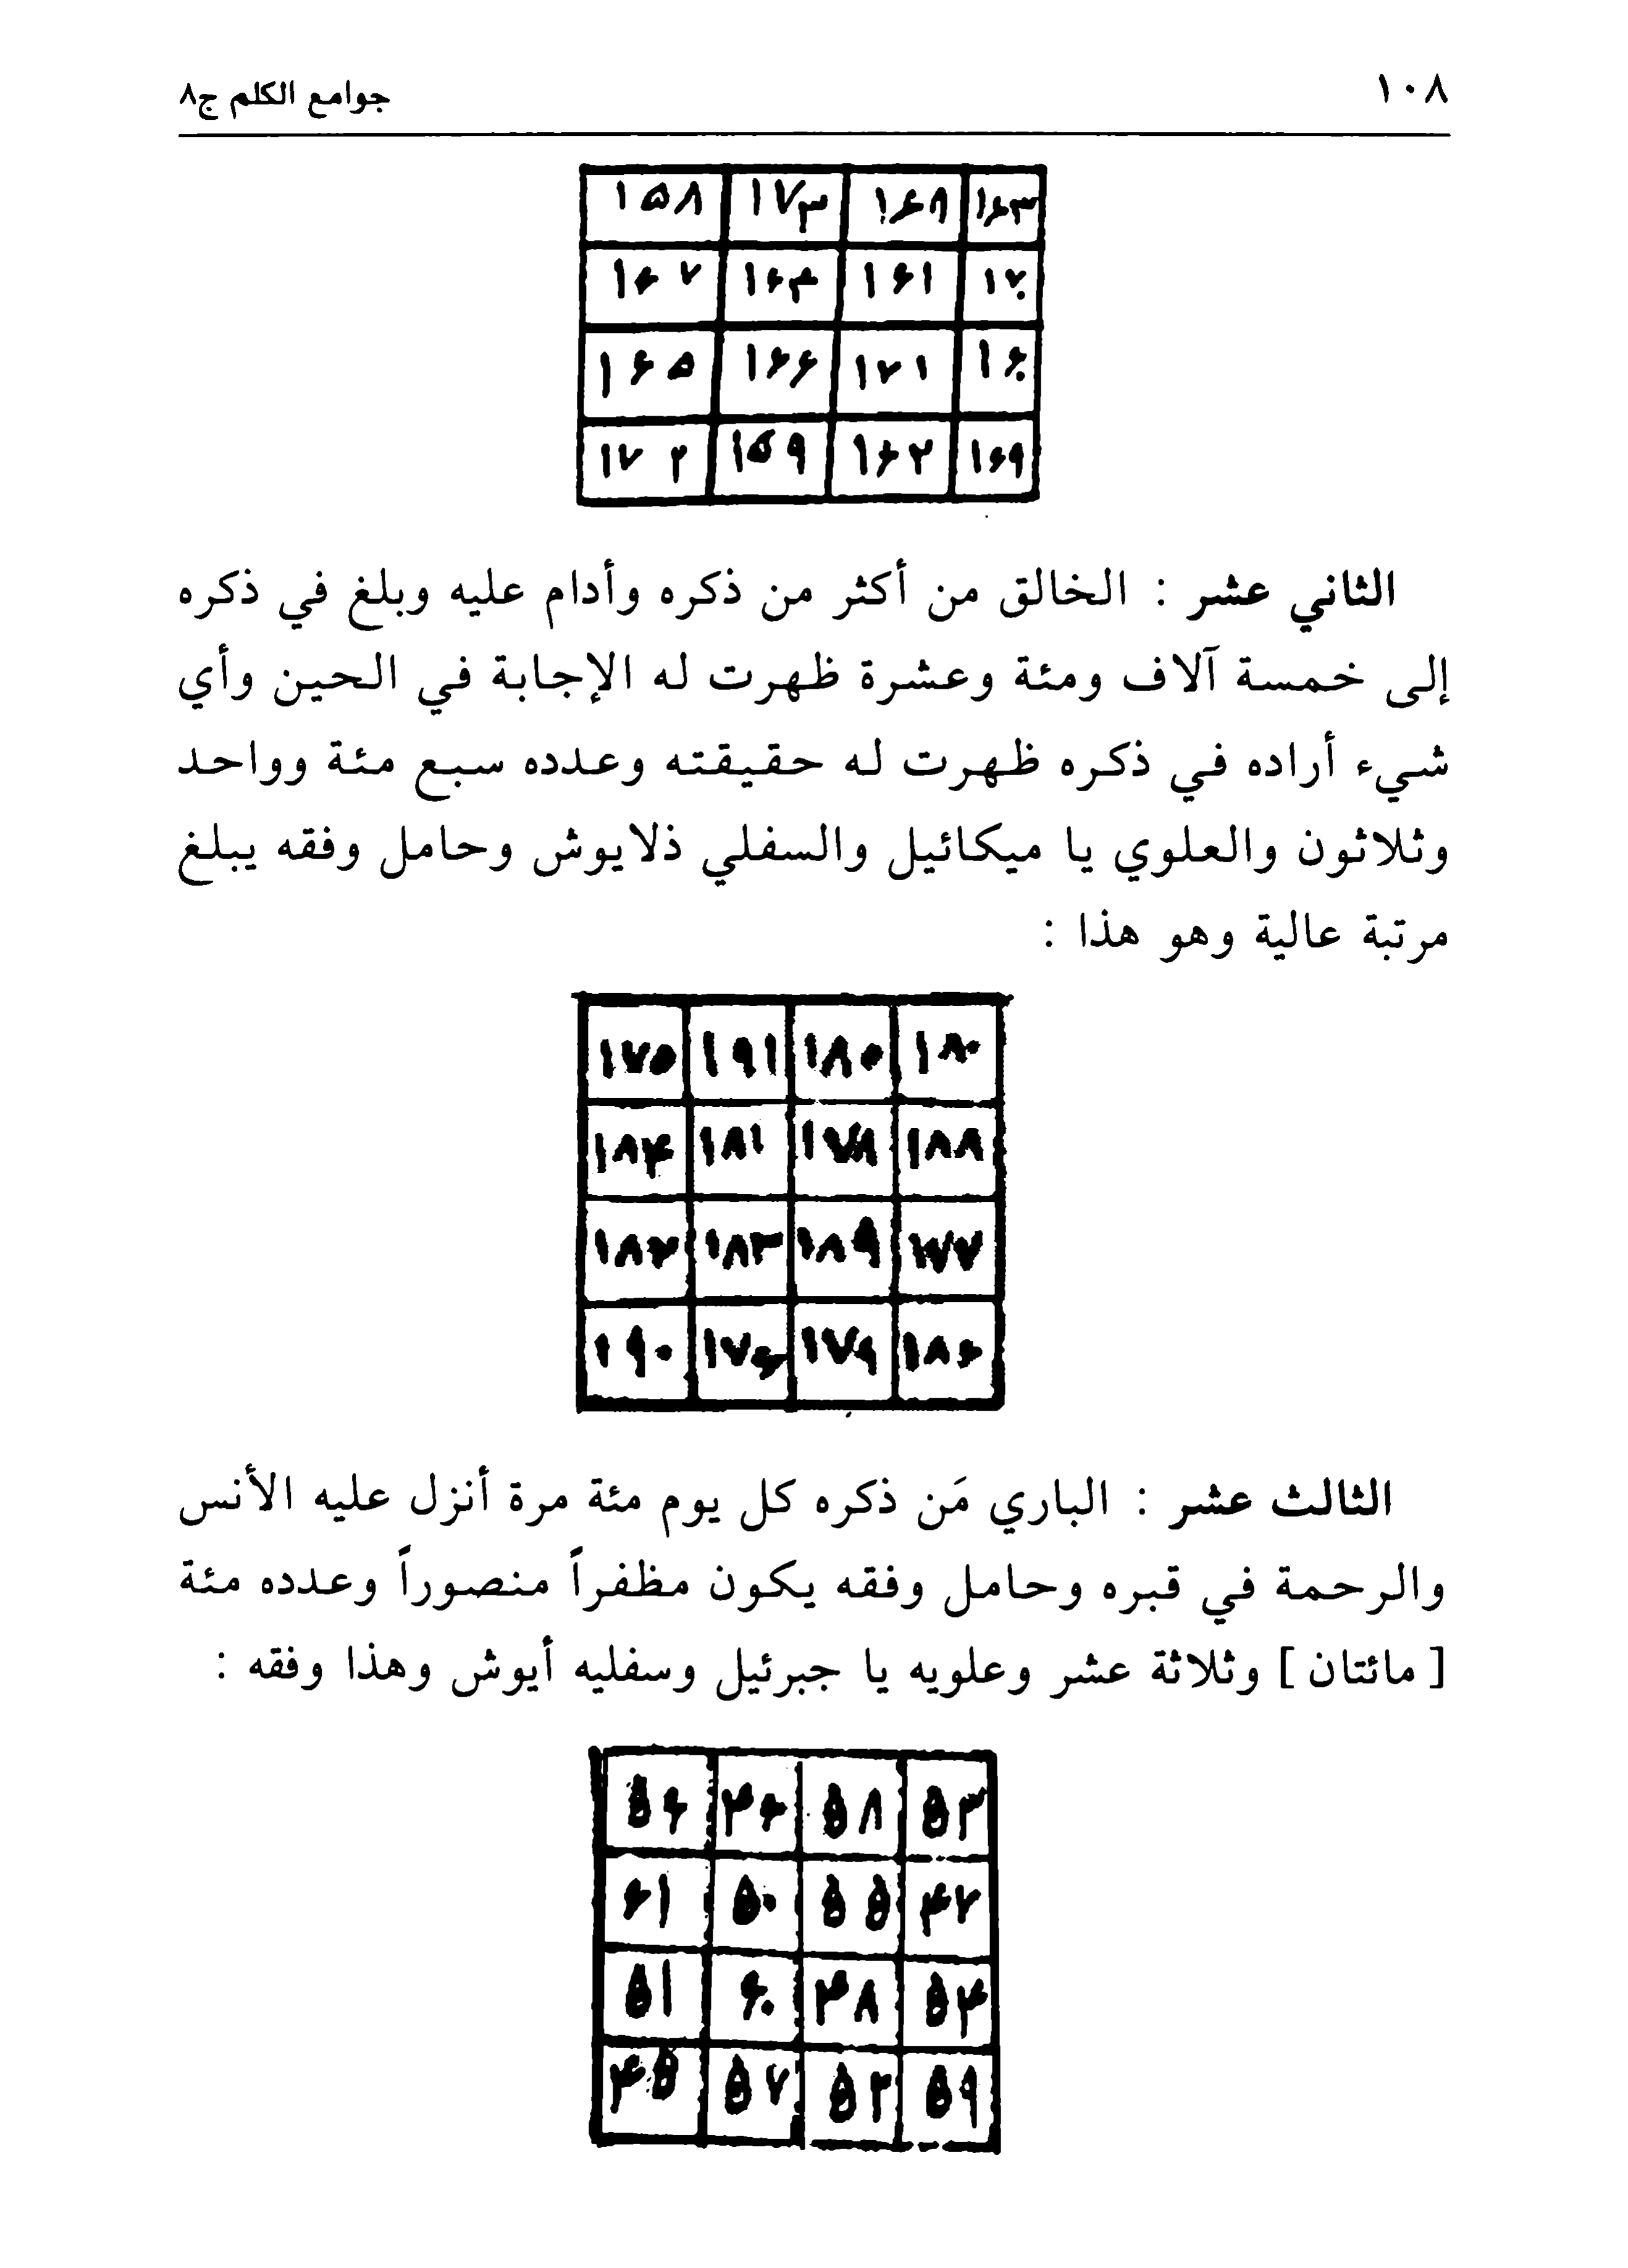 ١٠٨ جوامع الكلم ج٨
١٥٨ ١٧٣ ١۶٨ ١۶٣
١۶٧ ١۶۴ ١۶١ ١٧٠
١۶۵ ١۶۶ ١٧١ ١۶٠
١٧٢ ١۵٩ ١۶٢ ١۶٩
الثاني عشر : الخالق من أكثر من ذكره وأدام عليه وبلغ في ذكره
إلى خمسة آلاف ومئة وعشرة ظهرت له الإجابة في الحين وأي
شيء أراده في ذكره ظهرت له حقيقته وعدده سبع مئة وواحد
وثلاثون والعلوي يا ميكائيل والسفلي ذلايوش وحامل وفقه يبلغ
مرتبة عالية وهو هذا :
١٧۵ ١٩١ ١٨۵ ١٨٠
١٨۴ ١٨١ ١٧٨ ١٨٨
١٨٢ ١٨٣ ١٨٩ ١٧٧
١٩٠ ١٧۶ ١٧٩ ١٨۶
الثالث عشر : الباري مَن ذكره كل يوم مئة مرة أنزل عليه الأنس
والرحمة في قبره وحامل وفقه يكون مظفراً منصوراً وعدده مئة
[ مائتان ] وثلاثة عشر وعلويه يا جبرئيل وسفليه أيوش وهذا وفقه :
۵۶ ۴۶ ۵٨ ۵٣
۶١ ۵٠ ۵۵ ۴٧
۵١ ۶٠ ۴٨ ۵۴
۴۵ ۵٧ ۵٢ ۵٩